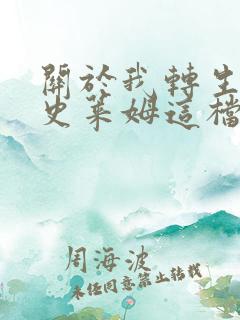 關於我轉生
史萊姆這檔
周海波
未经同意禁止转载